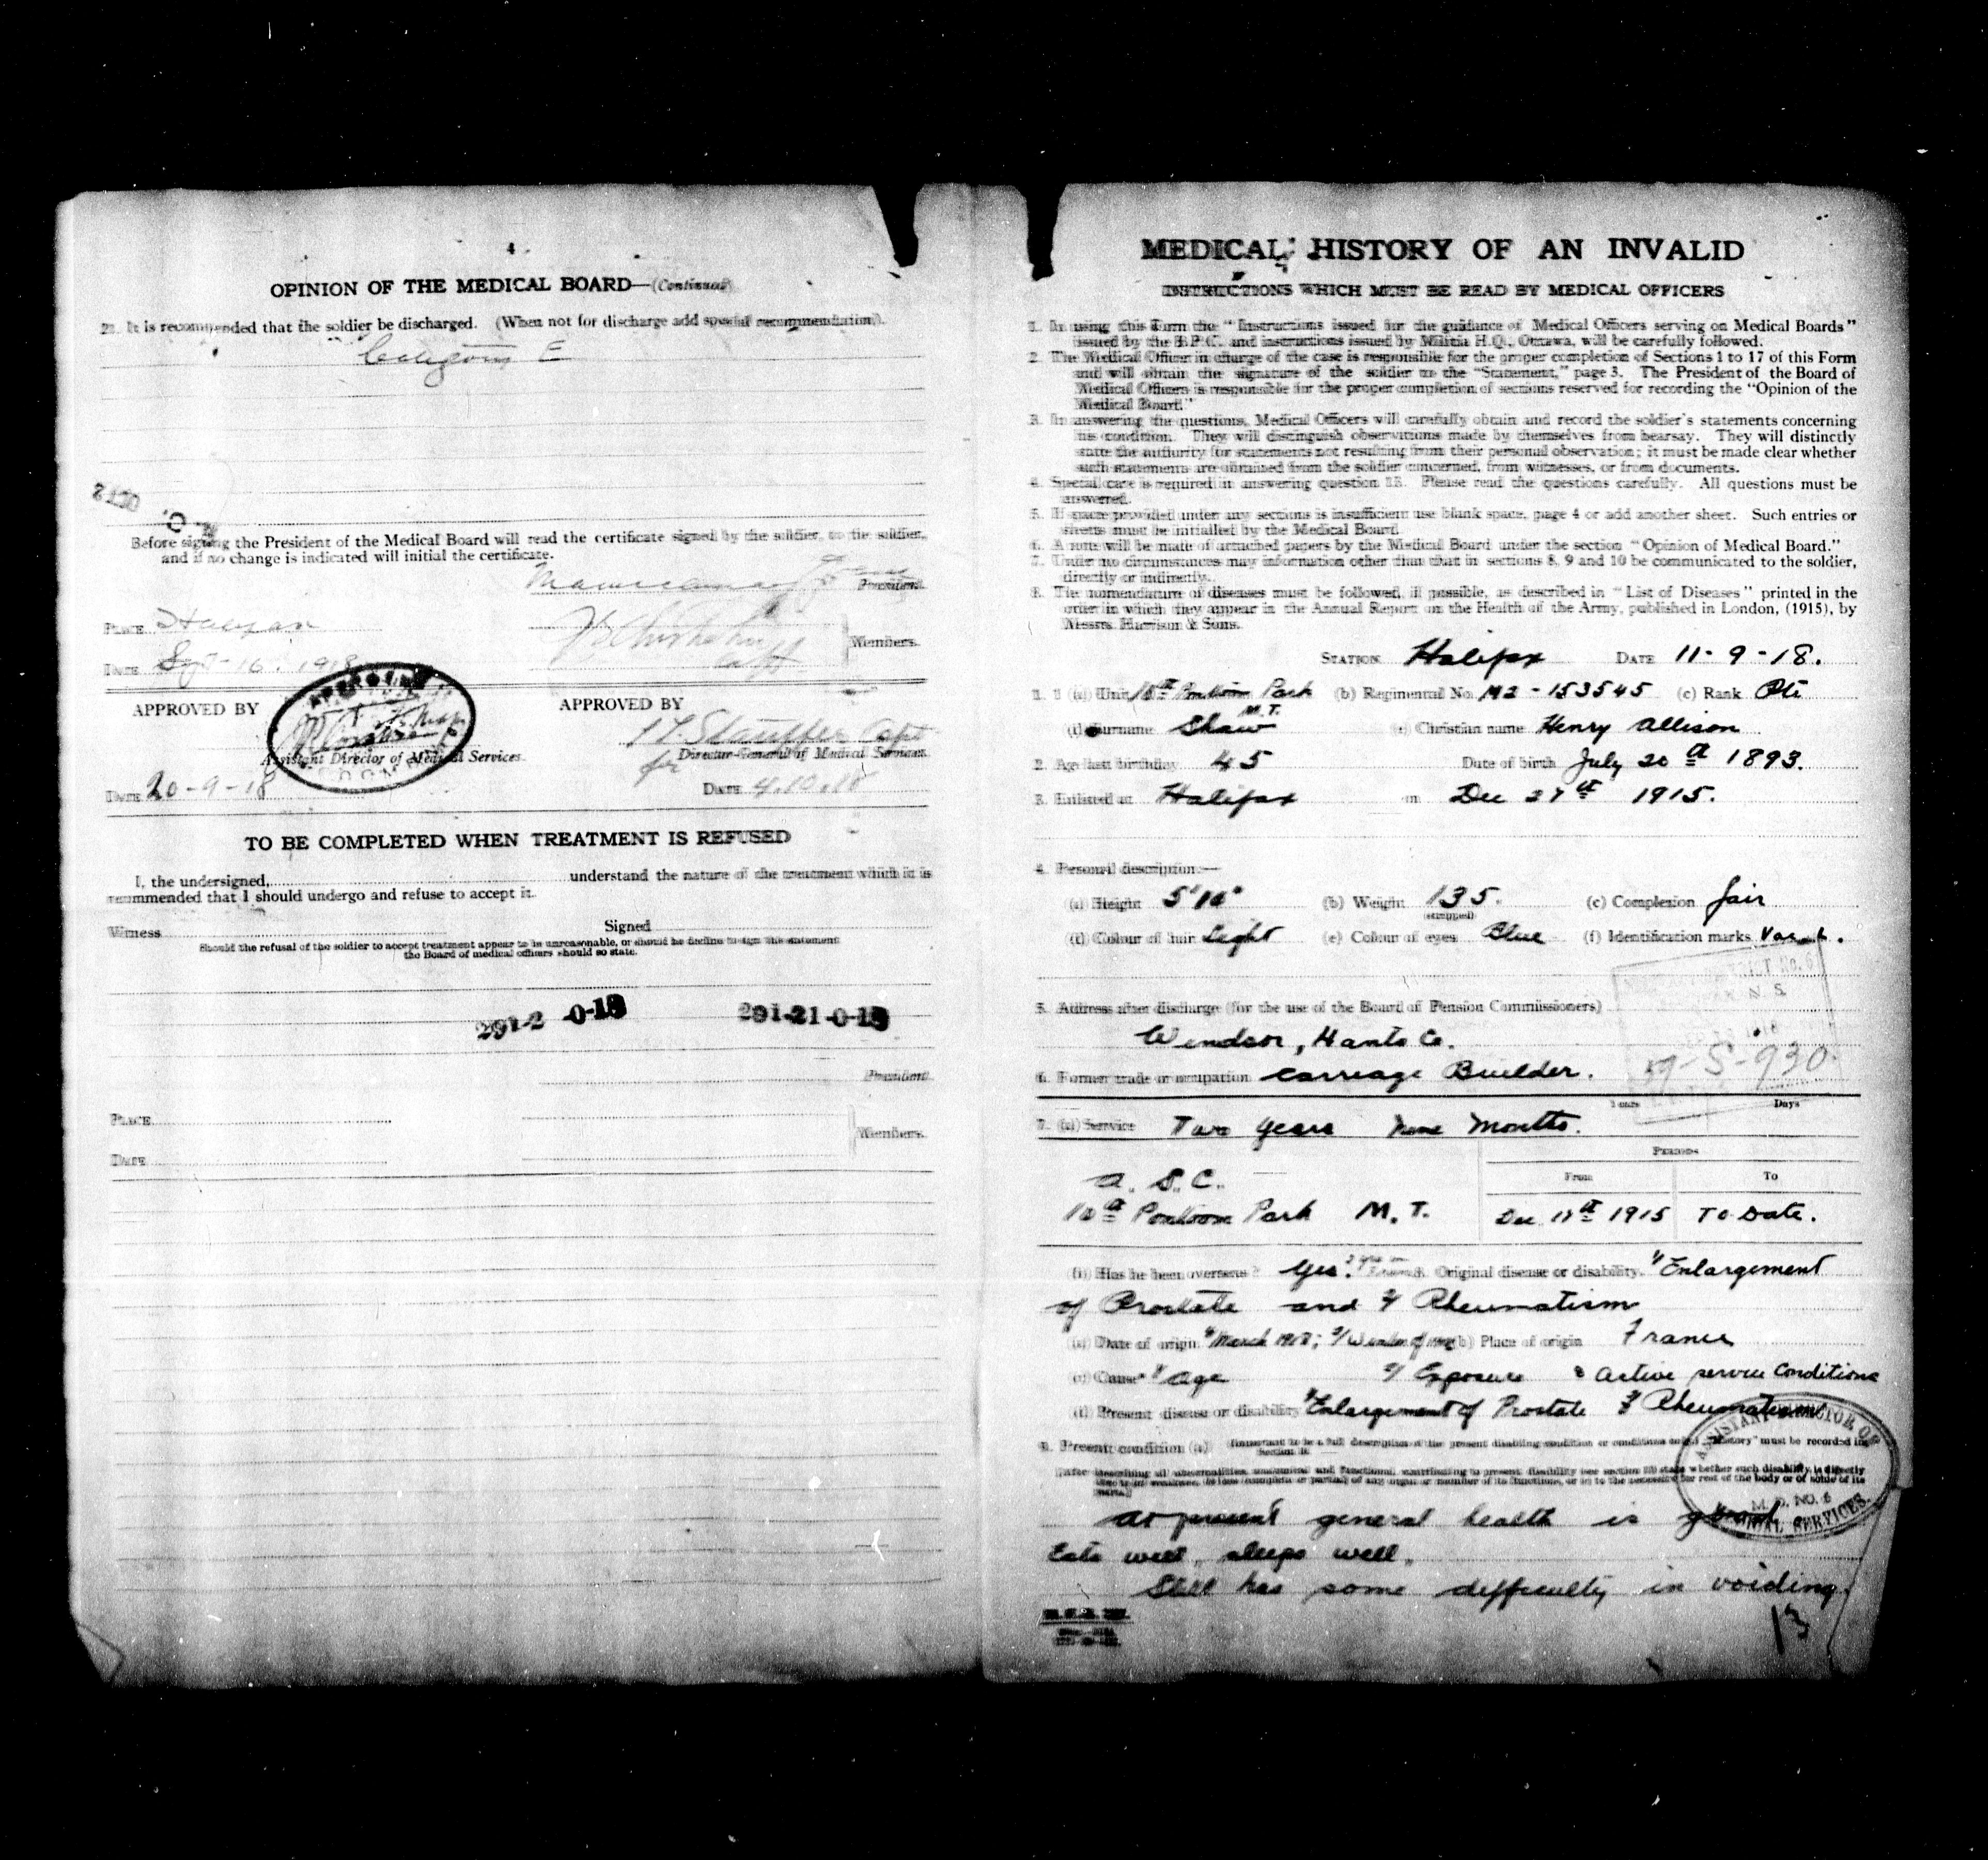 4
OPINION OF THE MEDICAL BOARD—(Continued)
It is recommended that the soldier be discharged. (When not for discharge add special recommendation).
Category E
Before signing the President of the Medical Board will read the certificate signed by the soldier, to the soldier,
and if no change is indicated will initial the certificate.
President.
PLACE Halifax
Members.
DATE Sept-16. 1918
APPROVED BY
Assistant Director of Medical Services.
DATE 20-9-18
APPROVED BY
Stauffer Capt
for Director-General of Medical Services.
DATE 4.10.18
TO BE COMPLETED WHEN TREATMENT IS REFUSED
I, the undersigned, understand the nature of the treatment which it is
recommended that I should undergo and refuse to accept it.
Signed
Witness
Should the refusal of the soldier to accept treatment appear to be unreasonable, or should he decline to sign the statement
the Board of medical officers should so state.
291-2 0-18 291-21-0-18
President.
PLACE
Members.
DATE
MEDICAL HISTORY OF AN INVALID
INSTRUCTIONS WHICH MUST BE READ BY MEDICAL OFFICERS
1. In using this Form the "Instructions issued for the guidance of Medical Officers serving on Medical Boards"
issued by the B.P.C. and instructions issued by Militia H.Q., Ottawa, will be carefully followed.
2. The Medical Officer in charge of the case is responsible for the proper completion of Sections 1 to 17 of this Form
and will obtain the signature of the soldier to the "Statement," page 3. The President of the Board of
Medical Officers is responsible for the proper completion of sections reserved for recording the "Opinion of the
Medical Board."
3. In answering the questions, Medical Officers will carefully obtain and record the soldier's statements concerning
his condition. They will distinguish observations made by themselves from hearsay. They will distinctly
state the authority for statements not resulting from their personal observation; it must be made clear whether
such statements are obtained from the soldier concerned, from witnesses, or from documents.
4. Special care is required in answering question 18. Please read the questions carefully. All questions must be
answered.
5. If space provided under any sections is insufficient use blank space, page 4 or add another sheet. Such entries or
sheets must be initialled by the Medical Board.
6. A note will be made of attached papers by the Medical Board under the section "Opinion of Medical Board."
7. Under no circumstances may information other than that in sections 8, 9 and 10 be communicated to the soldier,
directly or indirectly.
8. The nomenclature of diseases must be followed, if possible, as described in "List of Diseases" printed in the
order in which they appear in the Annual Report on the Health of the Army, published in London, (1915), by
Messrs. Harrison & Sons.
STATION Halifax DATE 11-9-18.
1. (a) Unit 10th Pontoon Park M.T. (b) Regimental No. M2-153545 (c) Rank Pte
(d) Surname Shaw (e) Christian name Henry Allison
2. Age last birthday 45 Date of birth July 20th 1893.
3. Enlisted at Halifax on Dec 27th 1915.
4. Personal description:—
(a) Height 5'10" (b) Weight 135. (stripped) (c) Complexion fair
(d) Colour of hair Light (e) Colour of eyes Blue (f) Identification marks
5. Address after discharge (for the use of the Board of Pension Commissioners)
Windsor, Hants Co.
59-S-930
6. Former trade or occupation Carriage Builder.
Years Days
7. (a) Service Two Years Nine Months.
PERIODS
From To
A. S. C.
10th Pontoon Park M. T. Dec 1915 To Date.
(b) Has he been overseas? Yes. Original disease or disability. 1/ Enlargement
of Prostate and 2/ Rheumatism
(a) Date of origin 1/ March 1918; 2/ Winter of (b) Place of origin France
(c) Cause 1/ Age 2/ Exposure & Active service Conditions
(d) Present disease or disability 1/ Enlargement of Prostate 2/ Rheumatism
Present condition (a)
At present general health is good.
Eats well, sleeps well.
Still has some difficulty in voiding
ASSISTANT DIRECTOR OF
M. D. NO. 6
MEDICAL SERVICES.
13